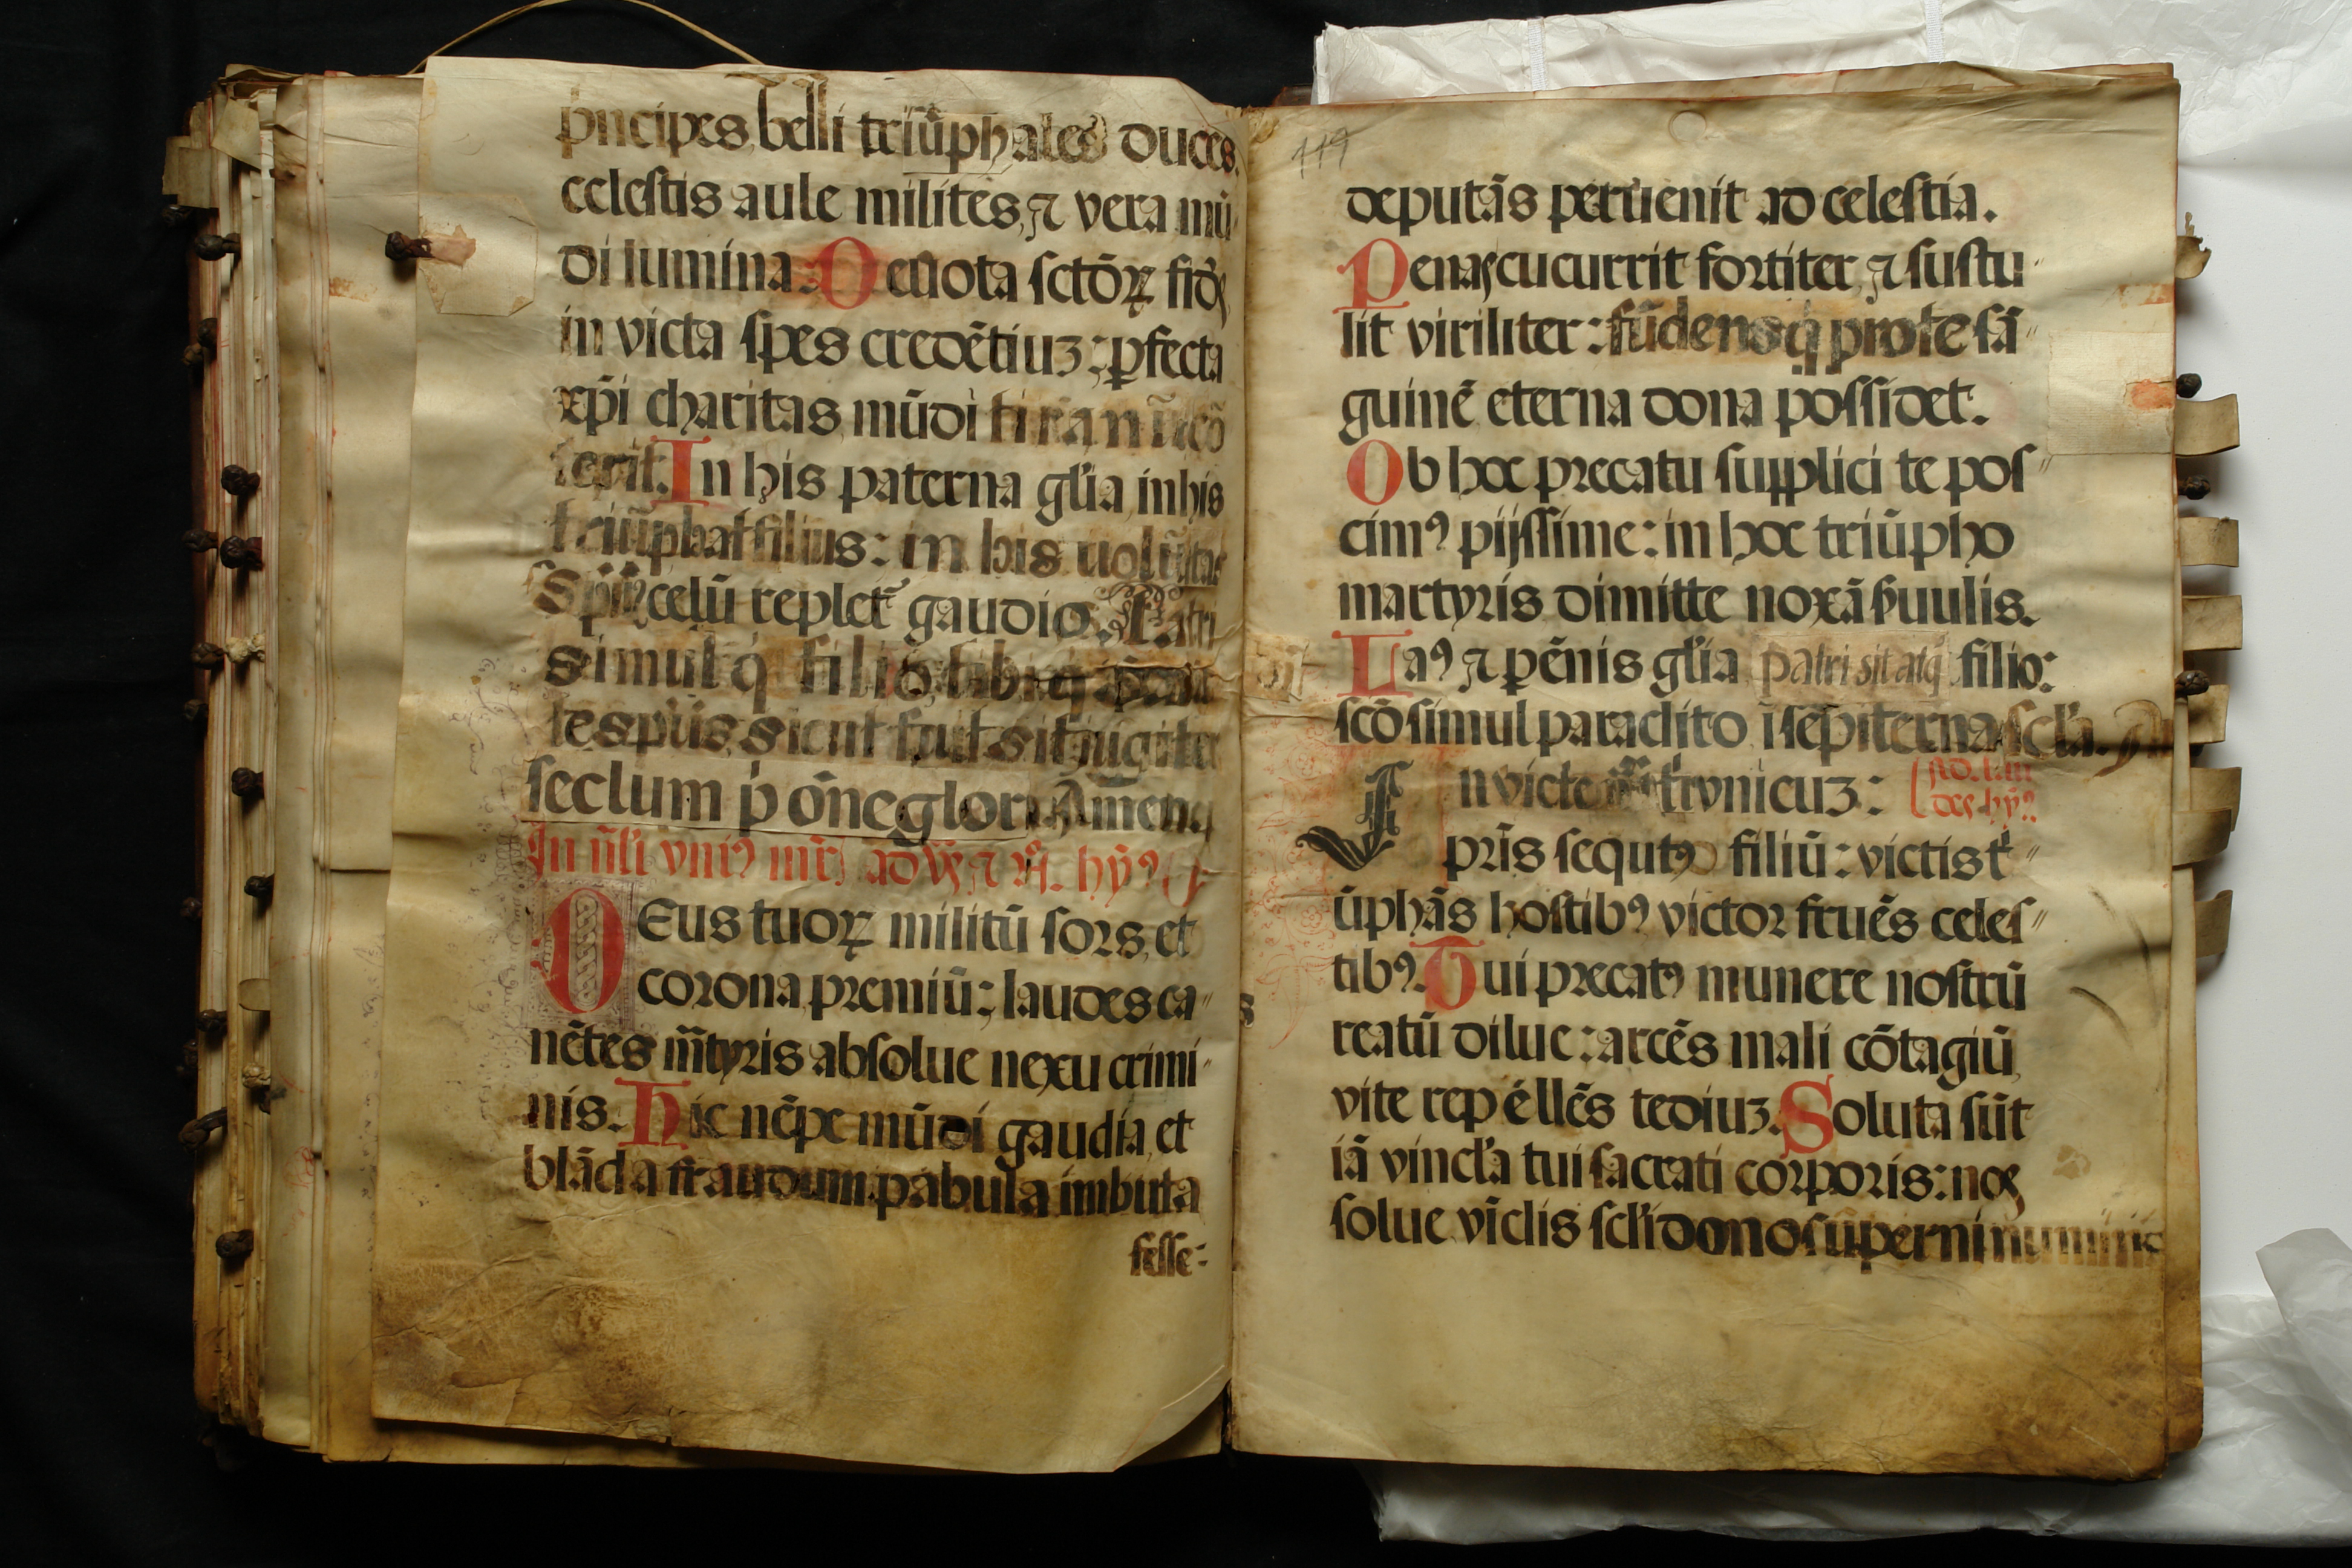 pͥncipes, belli triũphales duces.
celestis aule milites, ⁊ vera mũ
di lumina: Deuota sctõꝝ fid̃s
in victa spes credẽtiuꝫ: ꝑfecta
xp̃i charitas, mũdi tirannũ cõ
terit. In his paterna gl̃ia, in his
triũphat filius: in his uolũtas
Sp̃ũs, celũ replet᷑ gaudio. Patri
simulq̃ filio, tibiq̃
sicut fuit sit iugiter
seclum p̃ õne glori Amen.
In nl̃i vniꝰ mr̃s ad vs̃ ⁊ hỹꝰ
DEus tuoꝝ militũ sors, et
corona, premiũ: laudes ca
nẽtes m̃tyris absolue nexu crimi
nis. Hic nẽpe mũdi gaudia, et
blãda fraudum pabula imbuta
felle:
119
deputãs peruenit ad celestia.
Penas cucurrit fortiter, ⁊ sustu
lit viriliter: fũdensq̃ pro te sã
guinẽ eterna dona possidet.
Ob hoc precatu supplici te pos
cimꝰ pijssime: in hoc triũpho
martyris dimitte noxã s̃uulis.
Laꝰ ⁊ pẽnis gl̃ia patri sit atq̃ filio:
scõ simul paraclito ĩ sẽpiterna scl̃a.
Inuicte vnicuꝫ:
pr̃is sequtꝰ filiũ: victis tͥ
ũphãs hostibꝰ victor fruẽs celes
tibꝰ. Tui precatꝰ munere nostrũ
reatũ dilue: arcẽs mali cõtagiũ,
vite repellẽs tediuꝫ. Soluta sũt
iã vincl̃a tui sacrati corporis: nos
solue vĩclis scl̃i dono supͥerni numinis